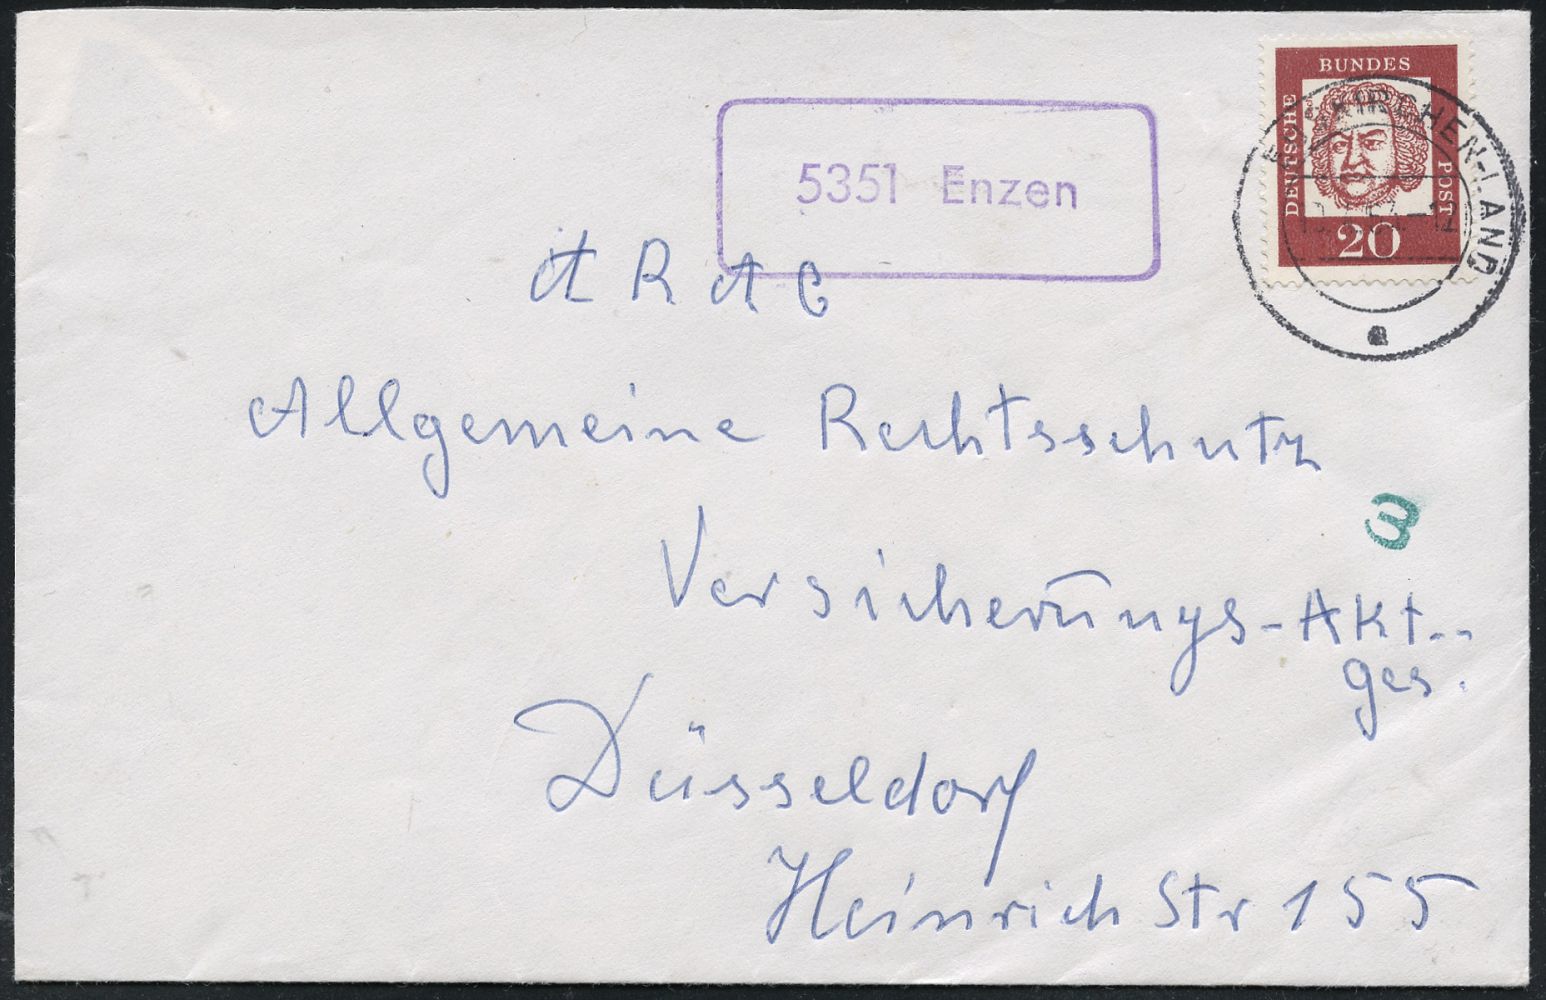 BUNDES
DEUTSCHE
POST
20
EUSKIRCHEN-LAND
a
5351 Enzen
ARAG
Allgemeine Rechtsschutz
3
Versicherungs-Akt.-
Ges.
Düsseldorf
Heinrich Str 155